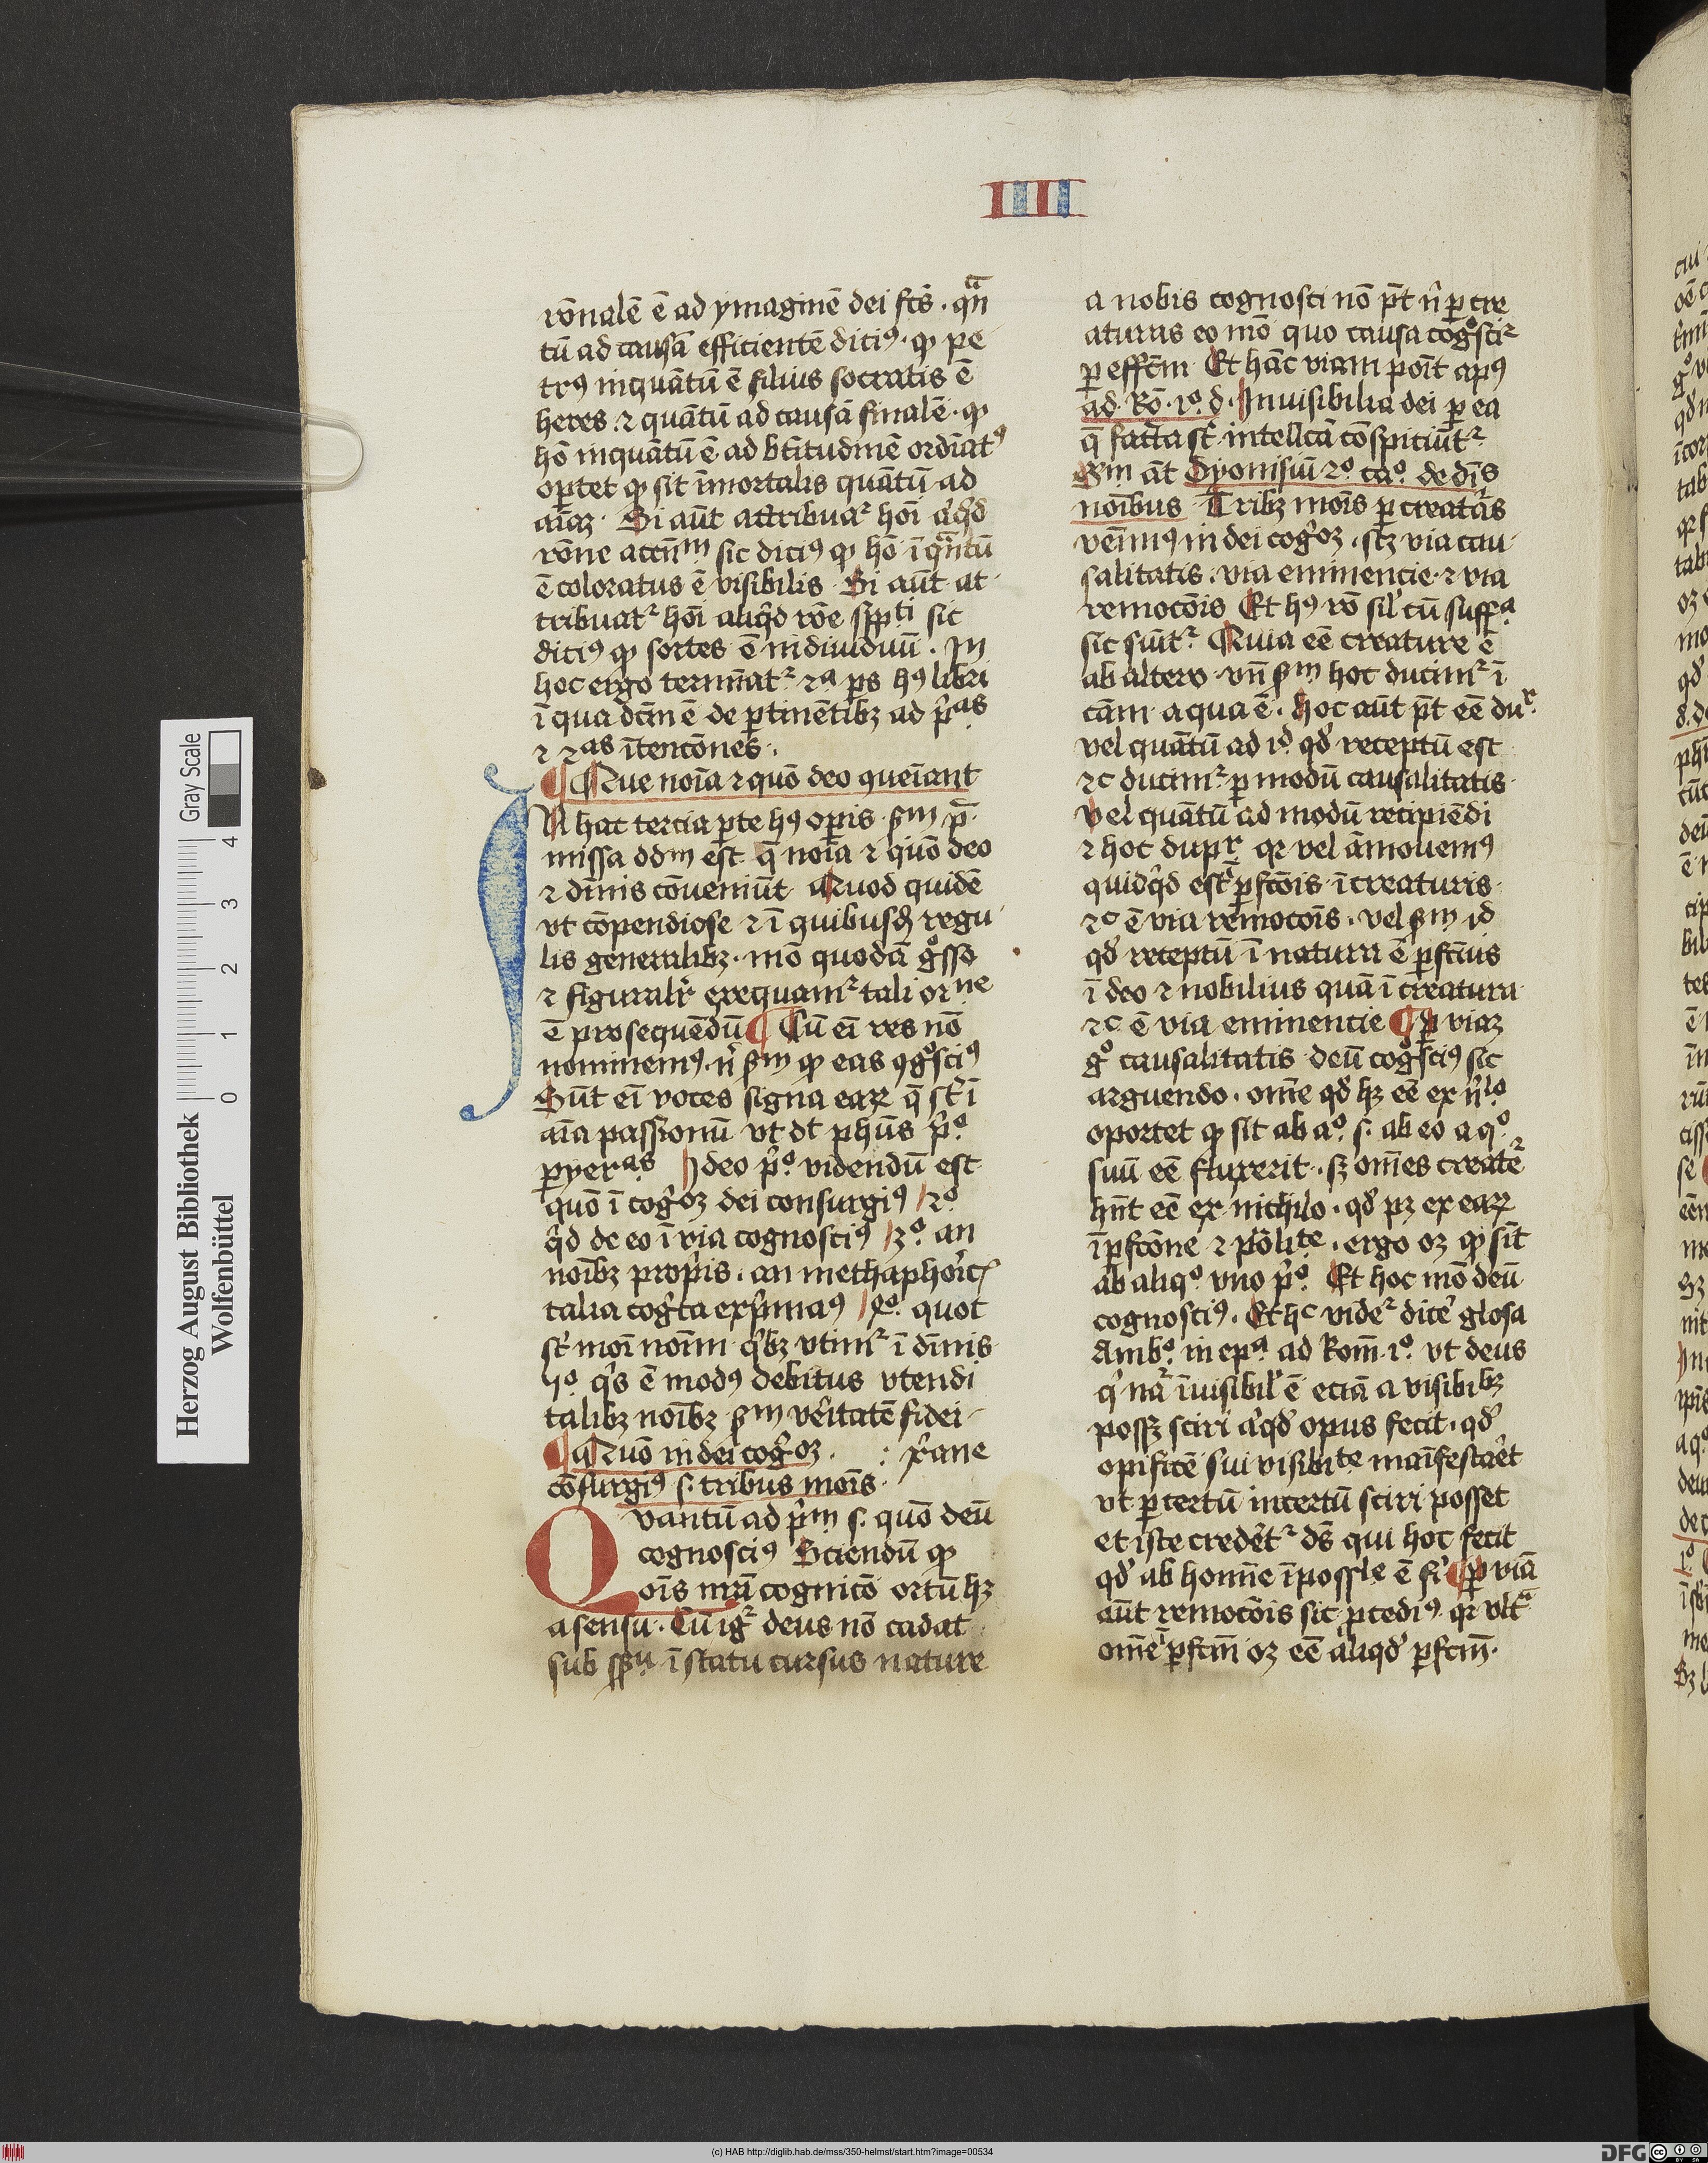 IIII
rōnalē ē ad ymaginē dei fcs̄ · qn̄
tū ad causā efficientē dicīꝰ · ꝙ pe
trꝰ inquātū ē filius socratis ē
heres · ⁊ quātū ad causā finalē · ꝙ
hō inquātū ē ad btītudinē ordīatꝰ
optet ꝙ sit īmortalis quātū ad
aīaꝫ · Si aūt attribuaᷣ hōi aꝗͥd
rōne accn̄m sic dicīꝰ ꝙ hō īqn̄tū
ē coloratus ē visibilis · Si aūt at
tribuatᷣ hōi aliqͥd rōe sp̄pti sic
dicīꝰ ꝙ sortes ē indiuiduū · In
hoc ergo termīatᷣ 2ᵃ ps hꝰ libri
ī qua dcm̄ ē de ꝑtinētibꝫ ad pͥᵃˢ
⁊ 2ᵃˢ ītencōnes ·
¶ Que noīa ⁊ quō deo ꝯueīant
IN hac tercia ꝑte hꝰ opis · ẜm p̄
missa ddm̄ est q̄ noīa ⁊ quō deo
⁊ dīnis cōueniūt Quod quidē
vt cōpendiose ⁊ ī quibusdā regu
lis generalibꝫ · mō quodā gͦsso
⁊ figuralrͥ exequamᷣ tali orⁿᵉ
ē prosequēdū ¶ Cū eī res nō
nominemꝰ nͥ ẜm ꝙ eas ꝯgͦscīꝰ
Sūt eī voces signa eaꝝ q̄ st̄ ī
aīa passionū vt dt phūs pͥᵒ
ꝑyerᵃˢ Ideo pͥᵒ videndū est
quō ī cogͦꝫ dei consurgīꝰ 2ᵒ
qͥd de eo ī via cognoscīꝰ 3ᵒ · an
noībꝫ proprͥis · an methaphorͥcꝭ
talia cogͥta exprͥmaꝰ 4ᵒ quot
st̄ moī noīm qͥbꝫ vtimᷣ ī dīnis
5ᵒ qͥs ē modꝰ debitus vtendi
talibꝫ noībꝫ ẜm vērͥtatē fidei
¶ Quō in dei cogͦꝫ · : xͥane
cōsurgīꝰ s. tribus moīs
Quantū ad pͥm s. quō deū
cognoscīꝰ Sciendū ꝙ
oīs nr̄a cognicō ortū hꝫ
a sensu · Cū igͥᷣ deus nō cadat
sub sp̄ū ī statu cursus nature
a nobis cognosci nō pt̄ nͥ ꝑ cre
aturas eo mō quo causa cōgͦsciᷣ
ꝑ effc̄m Et hāc viam poīt apꝰ
ad Ro · 1ᵒ d · Inuisibilia dei ꝑ ea
q̄ facta st̄ intell̄ca cōspiciūtᷣ
Sm āt Dyonisiū 2ᵒ cᵃᵒ de dīs
noībus Tribꝫ moīs ꝑ creatās
venīmꝰ in dei cogͦꝫ · scꝫ via cau
salitatis · via eminencie · ⁊ via
remocōis Et hꝰ rō silͥ cū suffᵃ
sic suītᷣ Quia eē creature ē
ab altero vn̄ ẜm hoc ducimᷣ ī
cām · a qua ē · hoc aūt pt̄ eē duʳ
vel quātū ad id qd̕ receptū est
⁊c ducimᷣ ꝑ modū causalitatis
vel quātū ad modū recipiēdi
⁊ hoc dupʳ qꝛ vel āmouemꝰ
quidqͥd estͥ ꝑfcōis ī creaturis
⁊c ē via remocoīs · vel ẜm id
qd̕ receptū ī natura ē ꝑfcīus
ī deo ⁊ nobilius quā ī creatura
⁊c ē via eminencie ¶ ꝑ viaꝫ
gͦ causalitatis deū cogͦscīꝰ sic
arguendo · omne qd̕ hꝫ eē ex nͥlᵒ
oportet ꝙ sit ab aᵒ · s. ab eo a qᵒ
suū eē fluxerit · sꝫ om̄es creatēᷣ
hn̄t eē ex nichilo · qd̕ pꝫ ex eaꝝ
īꝑfcōne ⁊ pōliᵗᵉ · ergo oꝫ ꝙ sīt
ab aliqᵒ vno pͥᵒ · Et hoc mō deū
cognoscīꝰ · Et hc videᷣ dice̕ glosa
Ambᵒ in epᵃ ad Rom̄ 1ᵒ vt deus
qͥ nāᷣ īuisibilͥ ē eciā a visibibꝫ
possꝫ sciri aͥqd̕ opus fecit · qd̕
opificē sui visibiᵗᵉ māifestaēt
vt ꝑ certū incertū sciri posset
et iste credētᷣ̕ ds̄ qui hoc fecit
qd̕ ab homīe īpossˡᵉ ē fi̕ ¶ ꝑ viā
aūt remocōis sic ꝓcedīꝰ qꝛ vltᵃ
omēͥ ꝑfcm̄ oꝫ eē aliqd̕ ꝑfcm̄ ·
Herzog August Bibliothek
Wolfenbüttel
Gray Scale
0 1 2 3 4
(c) HAB http://diglib.hab.de/mss/350-helmst/start.htm?image=00534
DFG